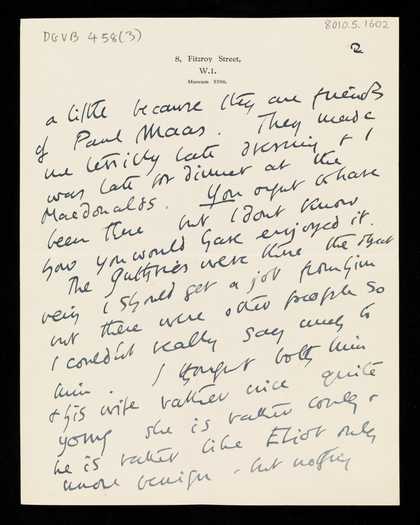 DGVB 458(3)
8010.5.1602
2
8, Fitzroy Street,
W.1.
Museum
a little because they are friends
of Paul Maas. They made
me terribly late dressing & I
was late for dinner at the
Macdonalds. You ought to have
been there but I dont know
how you would have enjoyed it.
The Guthries were there the
being I should get a job from him
but there were other people so
I couldnt really say much to
him. I thought both him
& his wife rather nice quite
young she is rather &
he is rather like Eliot only
more benign - but nothing